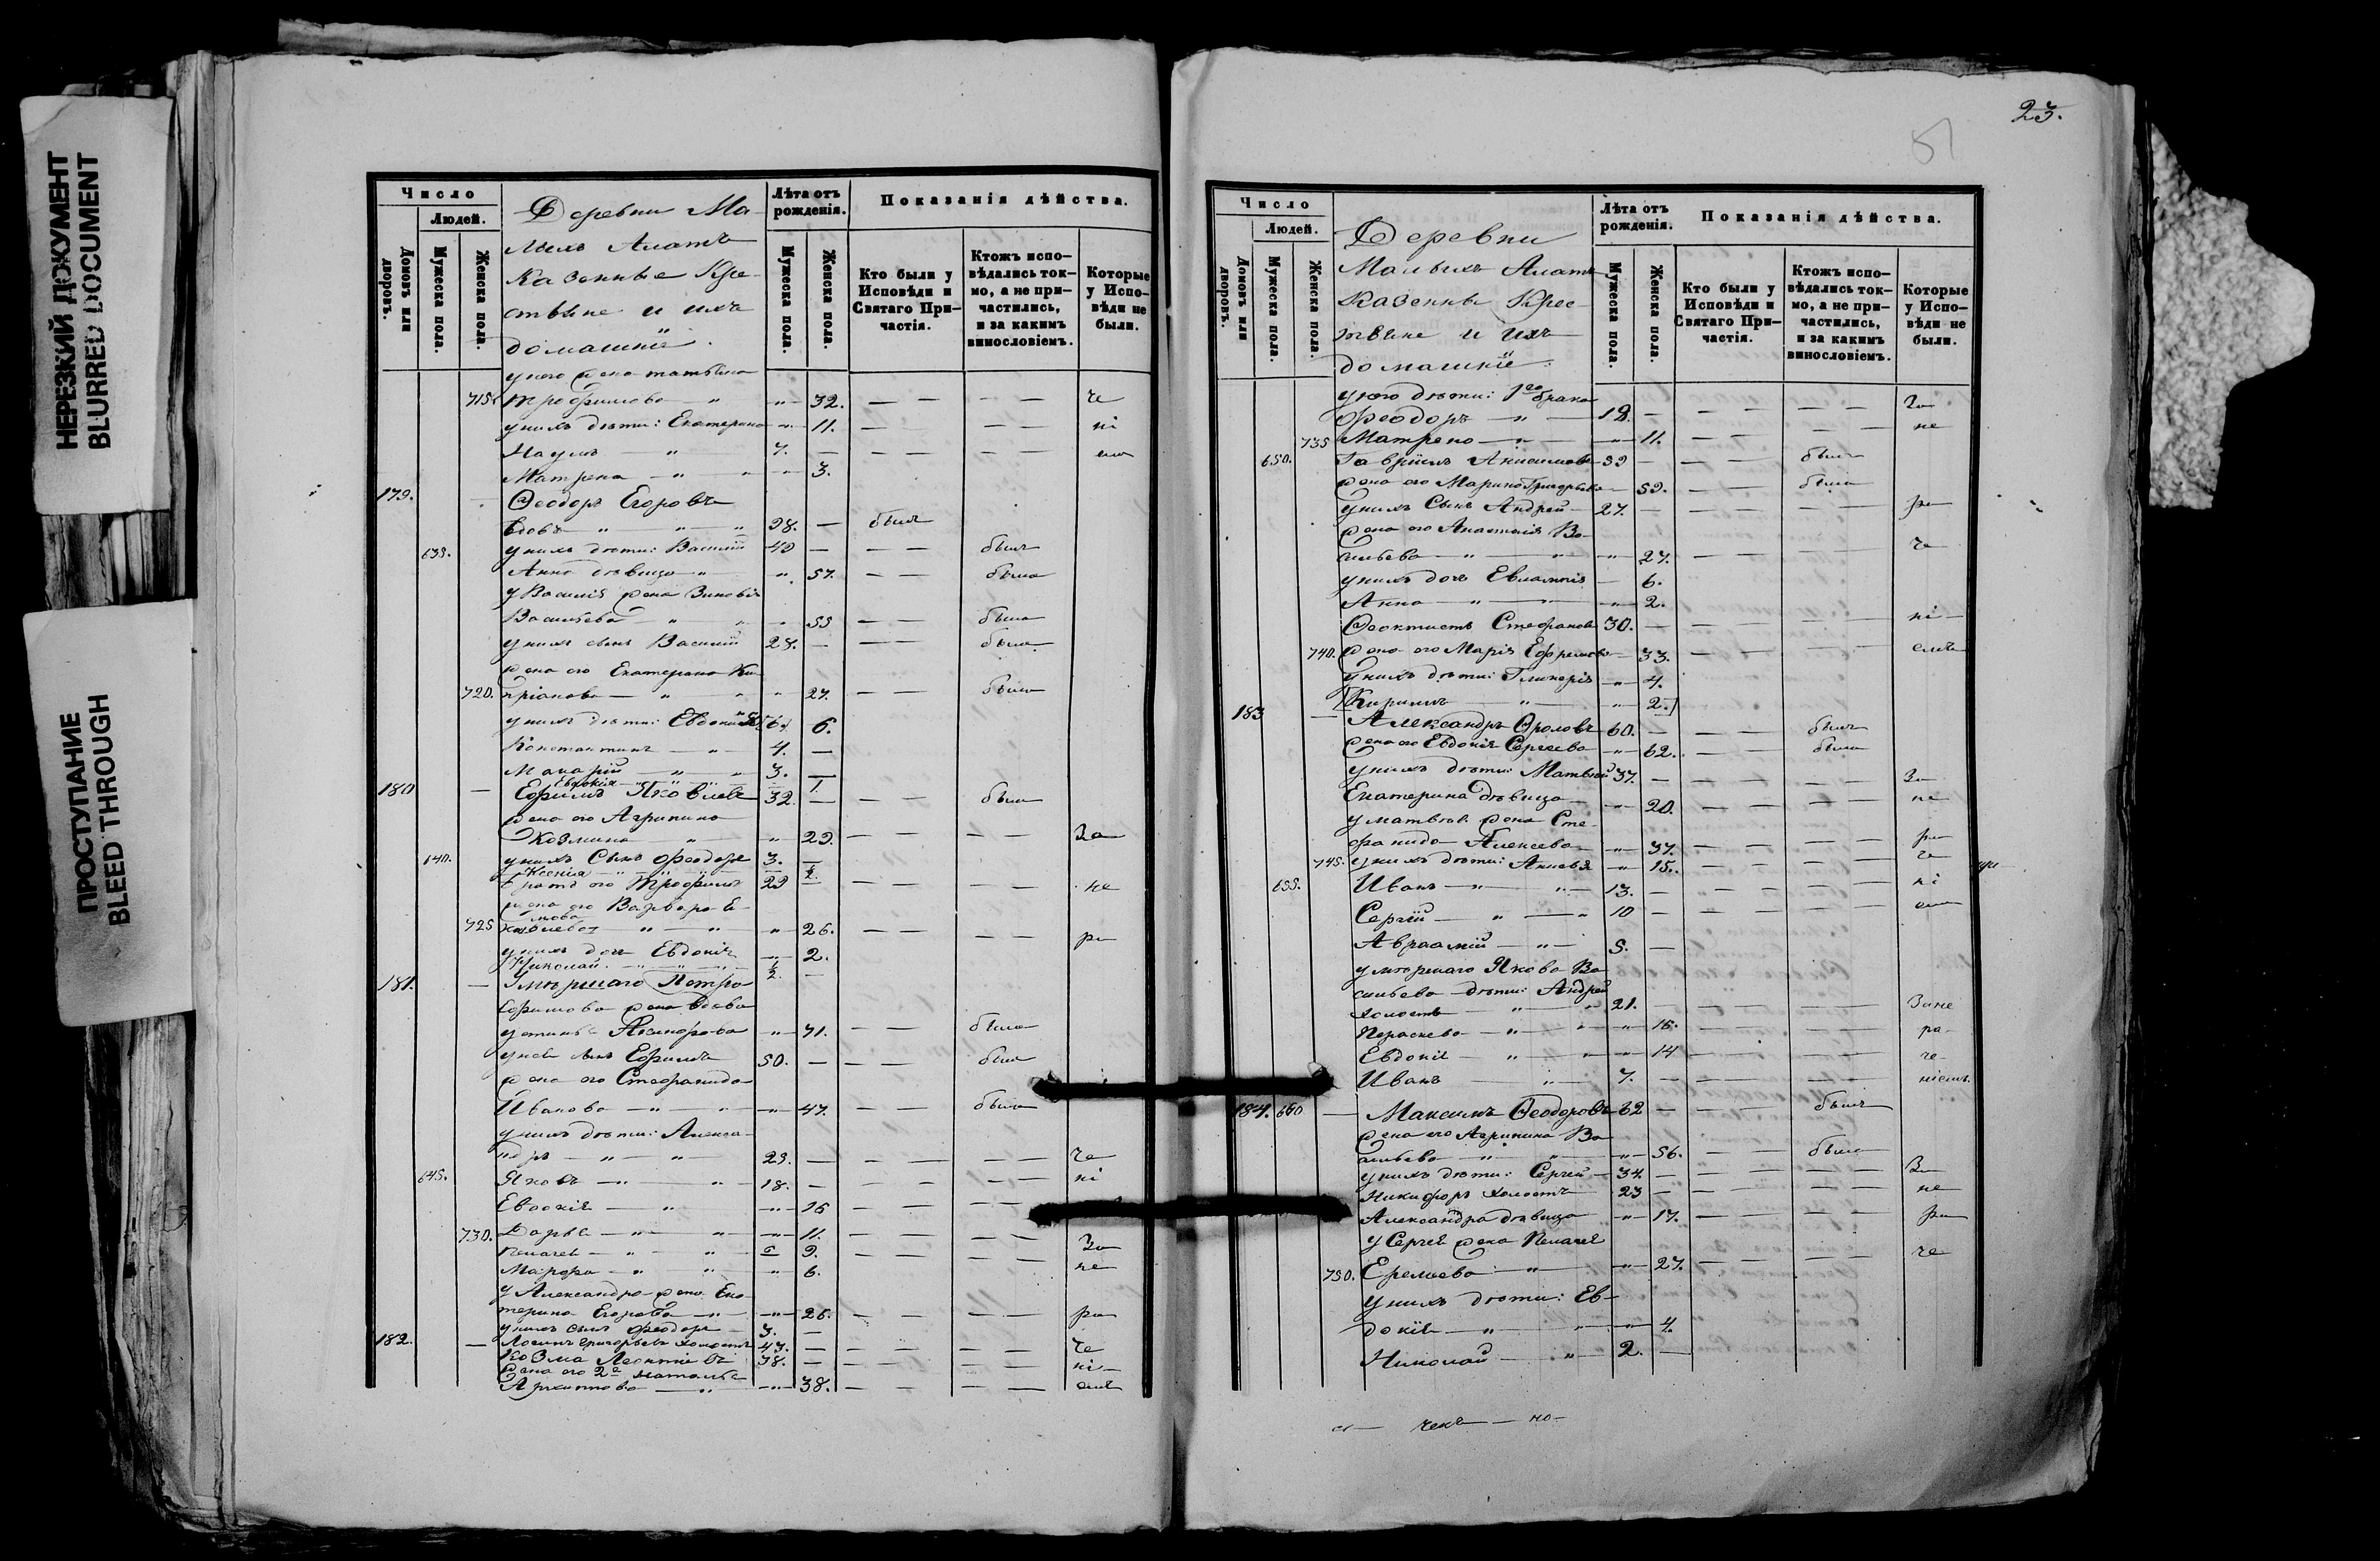 НЕРЕЗКИЙ ДОКУМЕНТ
BLURRED DOCUMENT
ПРОСТУПАНИЕ
BLEED THROUGH
Число
Людей.
Домовъ или дворовъ.
Мужеска пола.
Женска пола.
Деревни Ма-
лыхъ Алатъ
Казенные Кре-
стьяне и ихъ
домашніе.
Лѣта отъ рожденія.
Мужеска пола.
Женска пола.
Показанія дѣйства.
Кто были у Исповѣди и Святаго При-частія.
Ктожъ испо-вѣдались ток-мо, а не при-частились, и за какимъ винословіемъ.
Которые у Испо-вѣди не были.
у него жена Татьяна
715 Трофимова " " 32. че
у нихъ дѣти: Екатерина " 11. ні
Наумъ " 7. емъ
Матрена " " 3.
179. Ѳеодоръ Егоровъ
вдовъ " " 98. былъ
635. у нихъ дѣти: Василій 40 былъ
Анна дѣвица " " 57. была
у Василія жена Зиновія
Васильева " " 55 была
у нихъ сынъ Василій 28. былъ
жена его Екатерина Ки-
720. пріанова " " 27. была
у нихъ дѣти: Евдокія 6.
Константинъ " 4.
Макарій " " 3.
Евдокія 1.
180 Ефимъ Яковлевъ 32 былъ
жена его Агрипина
Козмина " " 29. За
640. у нихъ сынъ Ѳеодоръ 3.
Ксенія
братъ его Трофимъ 29 не
жена его Варвара
725 " " 26. ра
у нихъ дочь Евдокія 2.
Николай
181. Умершаго Петра
Ефимова жена вдова
Устинья " 71. была
у нея сынъ Ефимъ 50. былъ
жена его Стефанида
Иванова " " 47. была
у нихъ дѣти: Алекса-
ндръ " " 29. че
645. Яковъ " " 18. ні
Евдокія " " 16
730. Дарья " " 11.
Пелагея " " 9. За
Марфа " " 6. не
у Александра жена Ека-
терина Егорова " " 26. ра
у нихъ сынъ Ѳеодоръ 3.
182. Григорьевъ холостъ 47. че
Козма Леонтіевъ 38. ні
жена его 2я Наталья
Архиппова " " 38. емъ
23.
51
Число
Людей.
Домовъ или дворовъ.
Мужеска пола.
Женска пола.
Деревни
Малыхъ Алатъ
Казенные Крес-
тьяне и ихъ
домашніе.
Лѣта отъ рожденія.
Мужеска пола.
Женска пола.
Показанія дѣйства.
Кто были у Исповѣди и Святаго При-частія.
Ктожъ испо-вѣдались ток-мо, а не при-частились, и за какимъ винословіемъ.
Которые у Испо-вѣди не были.
у него дѣти: 1го брака
Ѳеодоръ " 18. За
735 Матрена " " 11. не
650. Гавріилъ Анисимовъ 59 былъ
жена его Марина Григорьева 59. была
у нихъ сынъ Андрей 27. ра
жена его Анастасія Ва-
сильева " " 27. че
у нихъ дочь Евлампія 6.
Анна " " 2.
Ѳеоктистъ Стефановъ 30. ні
740. жена его Марія Ефремова 33. емъ
у нихъ дѣти: Гликерія " 4.
Кирилъ " " 2.
183 Александръ Фроловъ 60. былъ
жена его Евдокія Сергеева " 62. была
у нихъ дѣти: Матвей 37. За
Екатерина дѣвица " 20. не
у Матвея жена Сте-
фанида Алексеева " 37. ра
745. у нихъ дѣти: " 15. че
655. Иванъ " " 13. ні
Сергій " " 10 емъ
Авраамій " 5.
умершаго Якова Ва-
сильева дѣти: Андрей
холостъ " " 21. За не
Параскева " " 16. ра-
Евдокія " " 14 че-
Иванъ " 7. ніемъ
184. 660 Максимъ Ѳеодоровъ 62 былъ
жена его Агрипина Ва-
сильева " " 56. была
у нихъ дѣти: Сергей 34. За
Никифоръ холостъ 23 не
Александра дѣвица " 17. ра
у Сергея жена Пелагея
750. Еремеева " " 27. че
у нихъ дѣти: Ев-
докія " " 4.
Николай " 2.